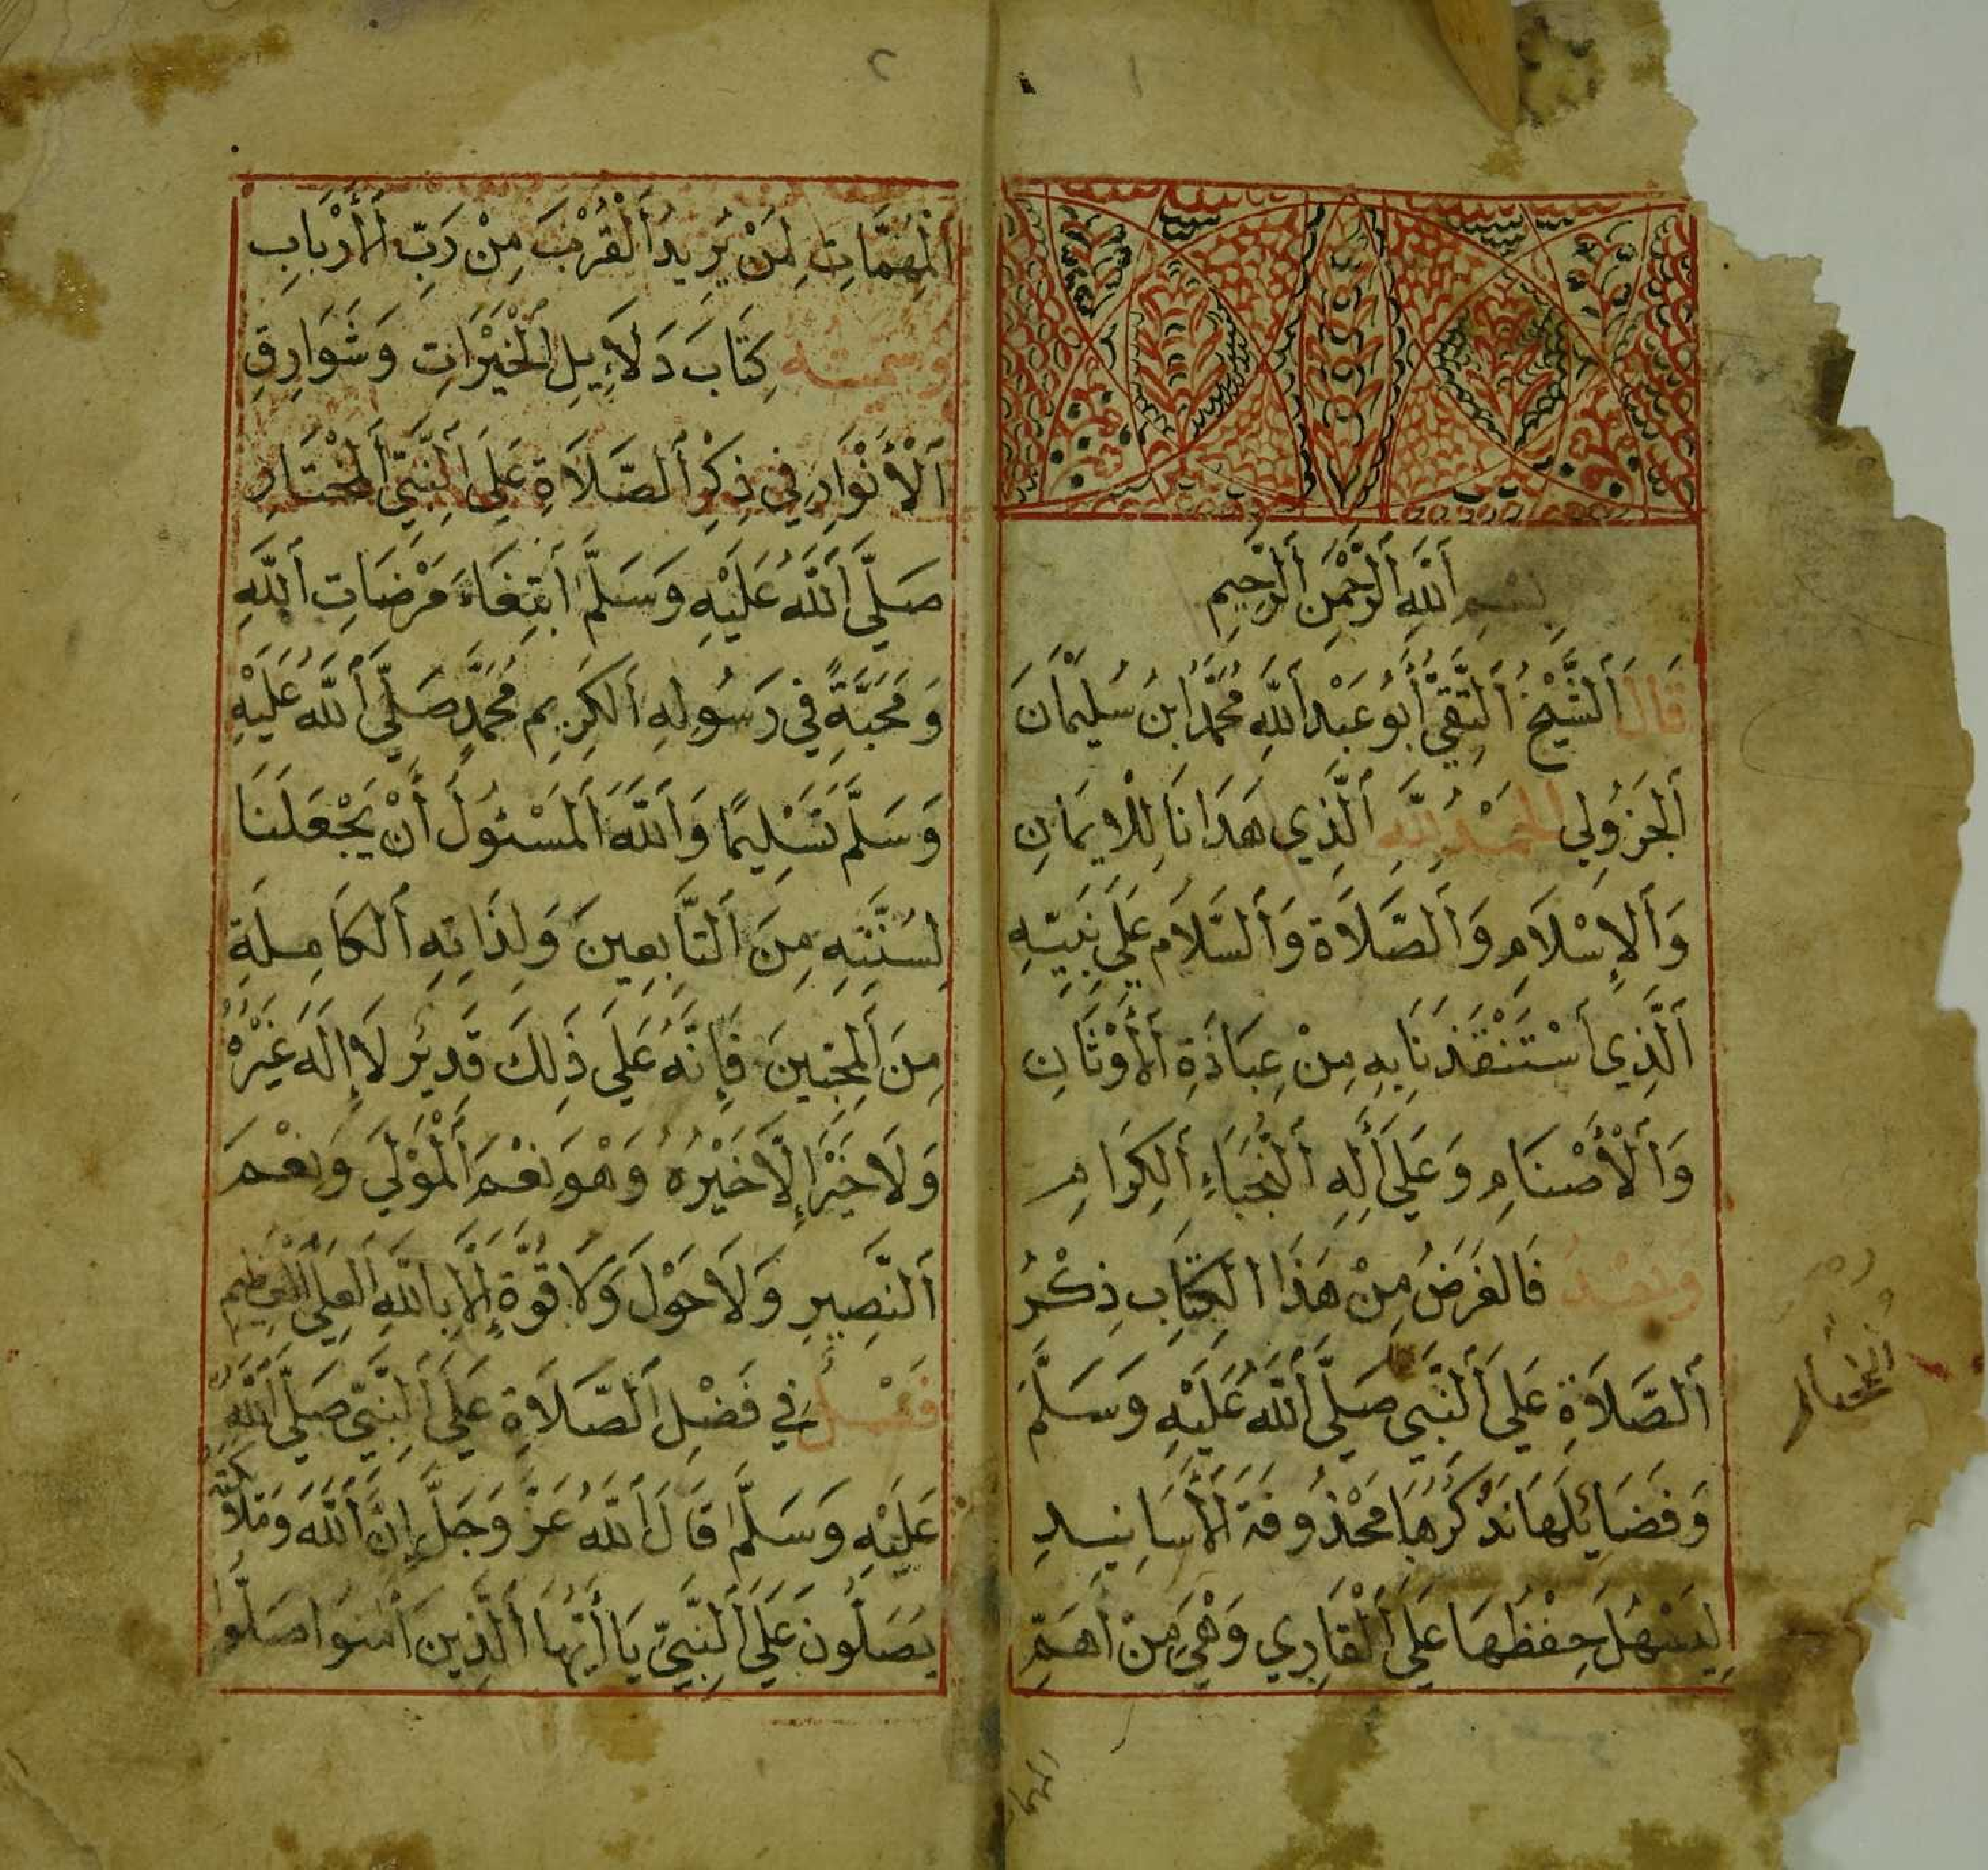 ١
بِسْمِ اَللَّهِ اَلرَّحْمٰنِ اَلرَّحِيمِ
قَالَ اَلشَّيْخُ اَلتَّقِيُّ أَبُو عَبْدِ اَللَّهِ مُحَمَّدُ ابْنُ سُلَيْمَانَ
اَلْجَزُولِي اَلْحَمْدُ لِلَّهِ اَلَّذِي هَدَانَا لِلْإِيمَانِ
وَاَلْإِسْلَامِ وَاَلصَّلَاةُ وَاَلسَّلَامُ عَلَى نَبِيِّهِ
اَلَّذِي اَسْتَنْقَذَنَا بِهِ مِنْ عِبَادَةِ اَلْأَوْثَانِ
وَاَلْأَصْنَامِ وَعَلَى أَلِهِ اَلنُّجَبَاءِ اَلْكِرَامِ
وَبَعْدُ فَالْغَرَضُ مِنْ هَذَا الْكِتَابِ ذِكْرُ
اَلصَّلَاةِ عَلَى اَلنَّبِي صَلَّى اَللَّهُ عَلَيْهِ وَسَلَّمَ
وَفَضَايِلَهَا نَذْكُرُهَا مَحْذُوفَةَ اَلْأَسَانِيدِ
لِيَسْهُلَ حِفْظُهَا عَلَى اَلْقَارِي وَهْيَ مِنْ أَهَمِّ
٢
اَلْمُهِمَّاتِ لِمَنْ يُرِيدُ اَلْقُرْبَ مِنْ رَبِّ اَلْأَرْبَابِ
وسميته كِتَابَ دَلَايِلِ اَلْخَيْرَاتِ وَشَوَارِقِ
اَلْأَنْوَارِ فِي ذِكْرِ اَلصَّلَاةِ عَلَى اَلنَّبِيِّ اَلْمُخْتَارِ
صَلَّى اَللَّهُ عَلَيْهِ وَسَلَّمَ اَبْتِغَاءَ مَرْضَاتِ اَللَّهِ
وَمَحَبَّةً فِي رَسُولِهِ اَلْكَرِيمِ مُحَمَّدٍ صَلَّى اَللَّهُ عَلَيْهِ
وَسَلَّمَ تَسْلِيمًا وَاَللَّهُ اَلْمَسْئُولُ أَنْ يَجْعَلَنَا
لِسُنَّتِهِ مِنَ اَلتَّابِعِينَ وَلِذَاتِهِ اَلْكَامِلَةِ
مِنَ اَلْمُحِبِّينَ فَإِنَّهُ عَلَى ذَلِكَ قَدِيرٌ لَا إِلَهَ غَيْرُهُ
وَلَا خَيْرَ إِلَّا خَيْرُهُ وَهْوَ نِعْمَ اَلْمَوْلَى وَنِعْمَ
اَلنَّصِيرِ وَلَا حَوْلَ وَلَا قُوَّةَ إِلَّا بِاللَّهِ اَلْعَلِيِّ اَلْعَظِيمِ
فَصْلٌ فِي فَضْلِ اَلصَّلَاةِ عَلَى اَلنَّبِيِّ صَلَّى اَللَّهُ
عَلَيْهِ وَسَلَّمَ قَالَ اَللَّهُ عَزَّ وَجَلَّ إِنَّ اَللَّهَ وَمَلَائِكَتَهُ
يُصَلُّونَ عَلَى اَلنَّبِيِّ يَا أَيُّهَا اَلَّذِينَ أَمَنُوا صَلُّوا